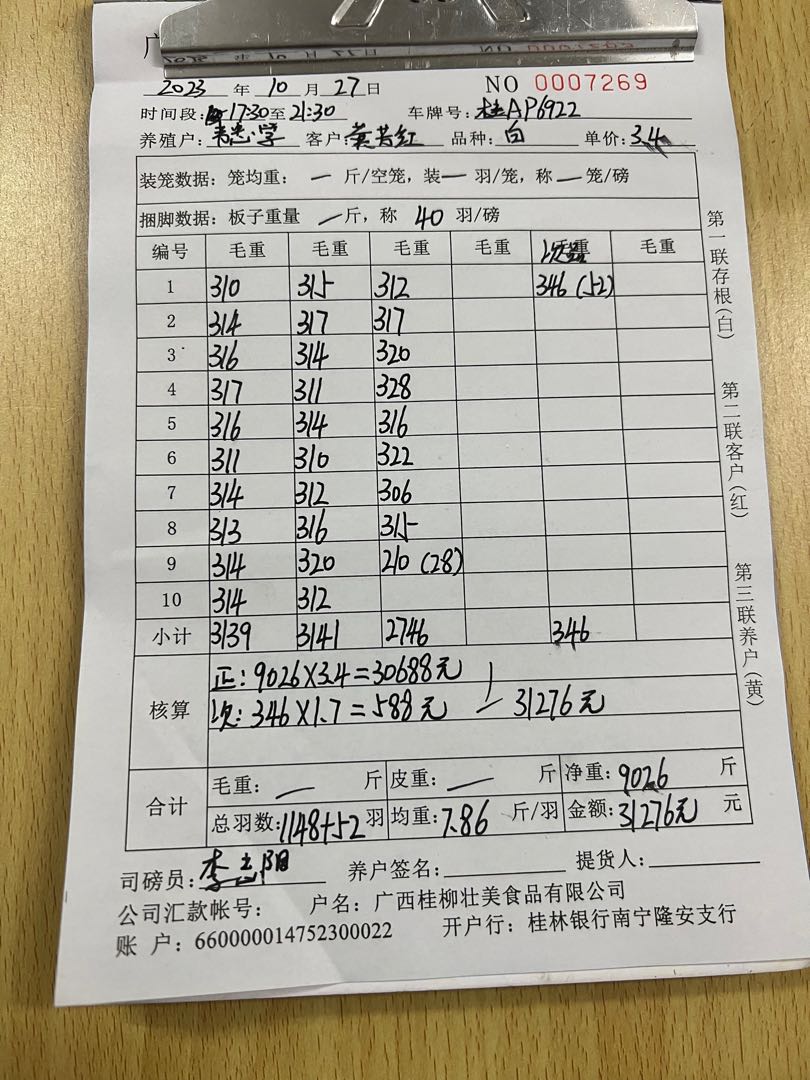 广
2023 年 10 月 27 日 NO 0007269
时间段: 17:30至21:30 车牌号: 桂AP6922
养殖户: 韦忠学 客户: 黄芳红 品种: 白 单价: 3.4
装笼数据: 笼均重: — 斤/空笼, 装 — 羽/笼, 称 — 笼/磅
捆脚数据: 板子重量 — 斤, 称 40 羽/磅
编号 毛重 毛重 毛重 毛重 毛重
1 310 315 312 346 (52)
2 314 317 317
3 316 314 320
4 317 311 328
5 316 314 316
6 311 310 322
7 314 312 306
8 313 316 315
9 314 320 210 (28)
10 314 312
小计 3139 3141 2746 346
核算
正: 9026×3.4=30688元
次: 346×1.7=588元 — 31276元
合计
毛重: — 斤 皮重: — 斤 净重: 9026 斤
总羽数: 1148+52 羽 均重: 7.86 斤/羽 金额: 31276元 元
司磅员: 李志阳 养户签名: 提货人:
公司汇款帐号: 户名: 广西桂柳壮美食品有限公司
账 户: 660000014752300022 开户行: 桂林银行南宁隆安支行
第一联存根(白)
第二联客户(红)
第三联养户(黄)